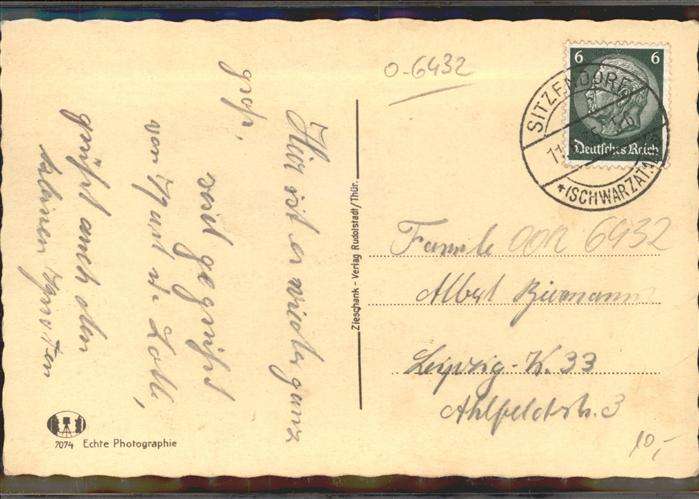 O-6432
6 6
Deutsches Reich
SITZENDORF
11.
*(SCHWARZAT.)
Hier ist es wieder ganz
groß,
seid gegrüßt
von und Lotte,
grüßt auch den
kleinen
Zieschank - Verlag Rudolstadt/Thür.
Familie OOR 6432
Albert Biermann
Leipzig-W. 33
Ahlfeldtstr. 3
10,-
7074 Echte Photographie